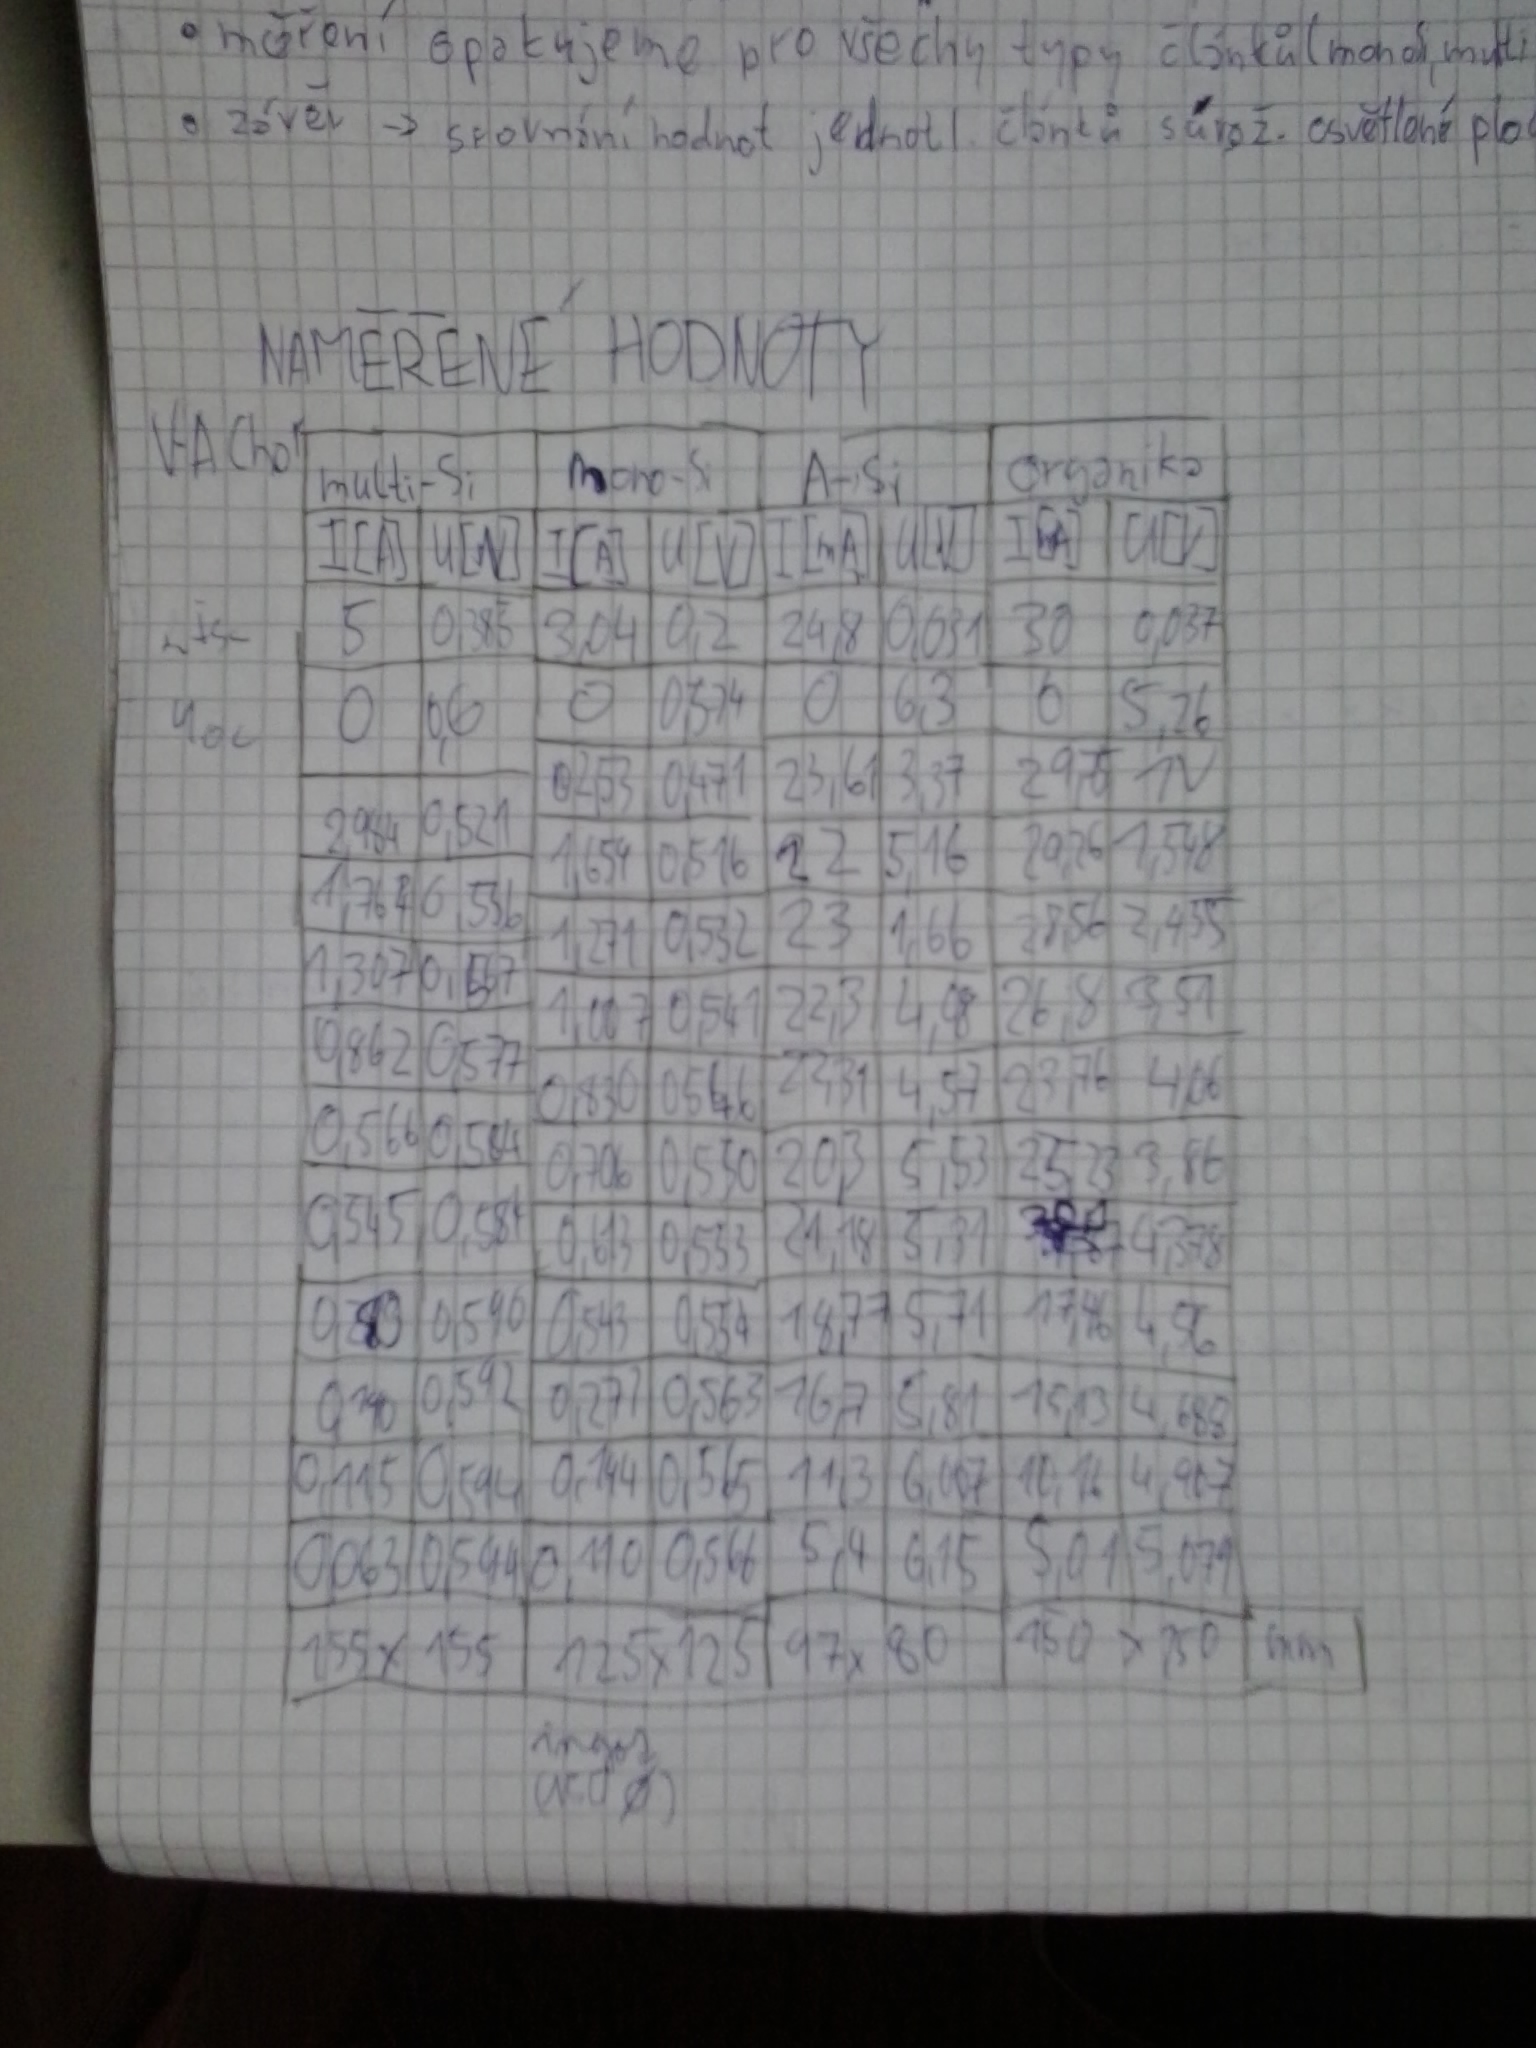 • měření opakujeme pro všechny typy článků (mono, multi
• závěr → srovnání hodnot jednotl. článků s úvaž. osvětlené plo
NAMĚŘENÉ HODNOTY
V-A Char
multi-Si mono-Si A-Si organika
I[A] U[V] I[A] U[V] I[mA] U[V] I[mA] U[V]
~Isc 5 0,385 3,04 0,2 24,8 0,031 30 0,037
Uoc 0 0,6 0 0,574 0 6,3 0 5,26
0,471 23,61 3,37 1V
2,984 0,521 1,654 0,516 22 5,16 1,548
0,536 1,271 0,532 23 1,66 28,56 2,455
1,307 1,007 0,541 22,3 4,08 26,8 3,51
0,862 0,577 0,830 4,57 23,76 4,06
0,566 0,584 0,706 0,550 20,3 5,53 25,23 3,86
0,545 0,584 0,613 0,553 21,18 5,31 4,378
0,590 0,543 0,554 18,77 5,71 17,46 4,56
0,592 0,277 0,563 16,7 5,81 15,13 4,685
0,115 0,594 0,144 0,565 11,3 6,007 10,16 4,907
0,063 0,594 0,110 0,566 5,4 6,15 5,01 5,079
155x155 125x125 97x80 150x150 mm
ingot